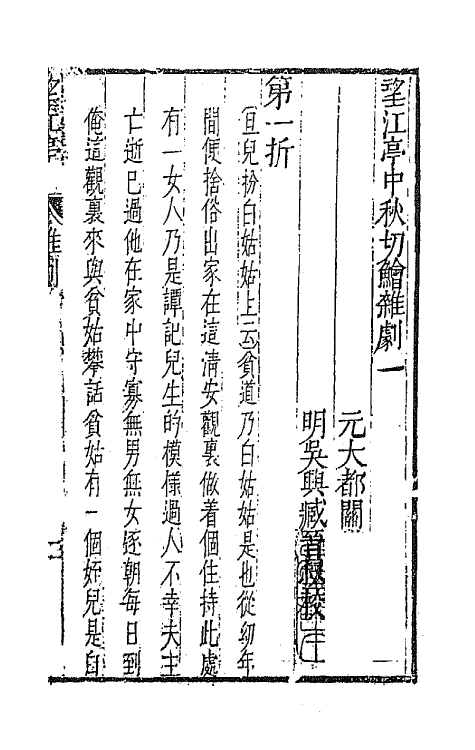 望江亭中秋切鱠雜劇一
元大都關
明吳興臧晉叔校
第一折
旦兒扮白姑姑上云貧道乃白姑姑是也從幼年
間便捨俗出家在這清安觀裏做着個住持此處
有一女人乃是譚記兒生的模樣過人不幸夫主
亡逝已過他在家中守寡無男無女逐朝每日到
俺這觀裏來與貧姑攀話貧姑有一個姪兒是白
望江亭
雜劇